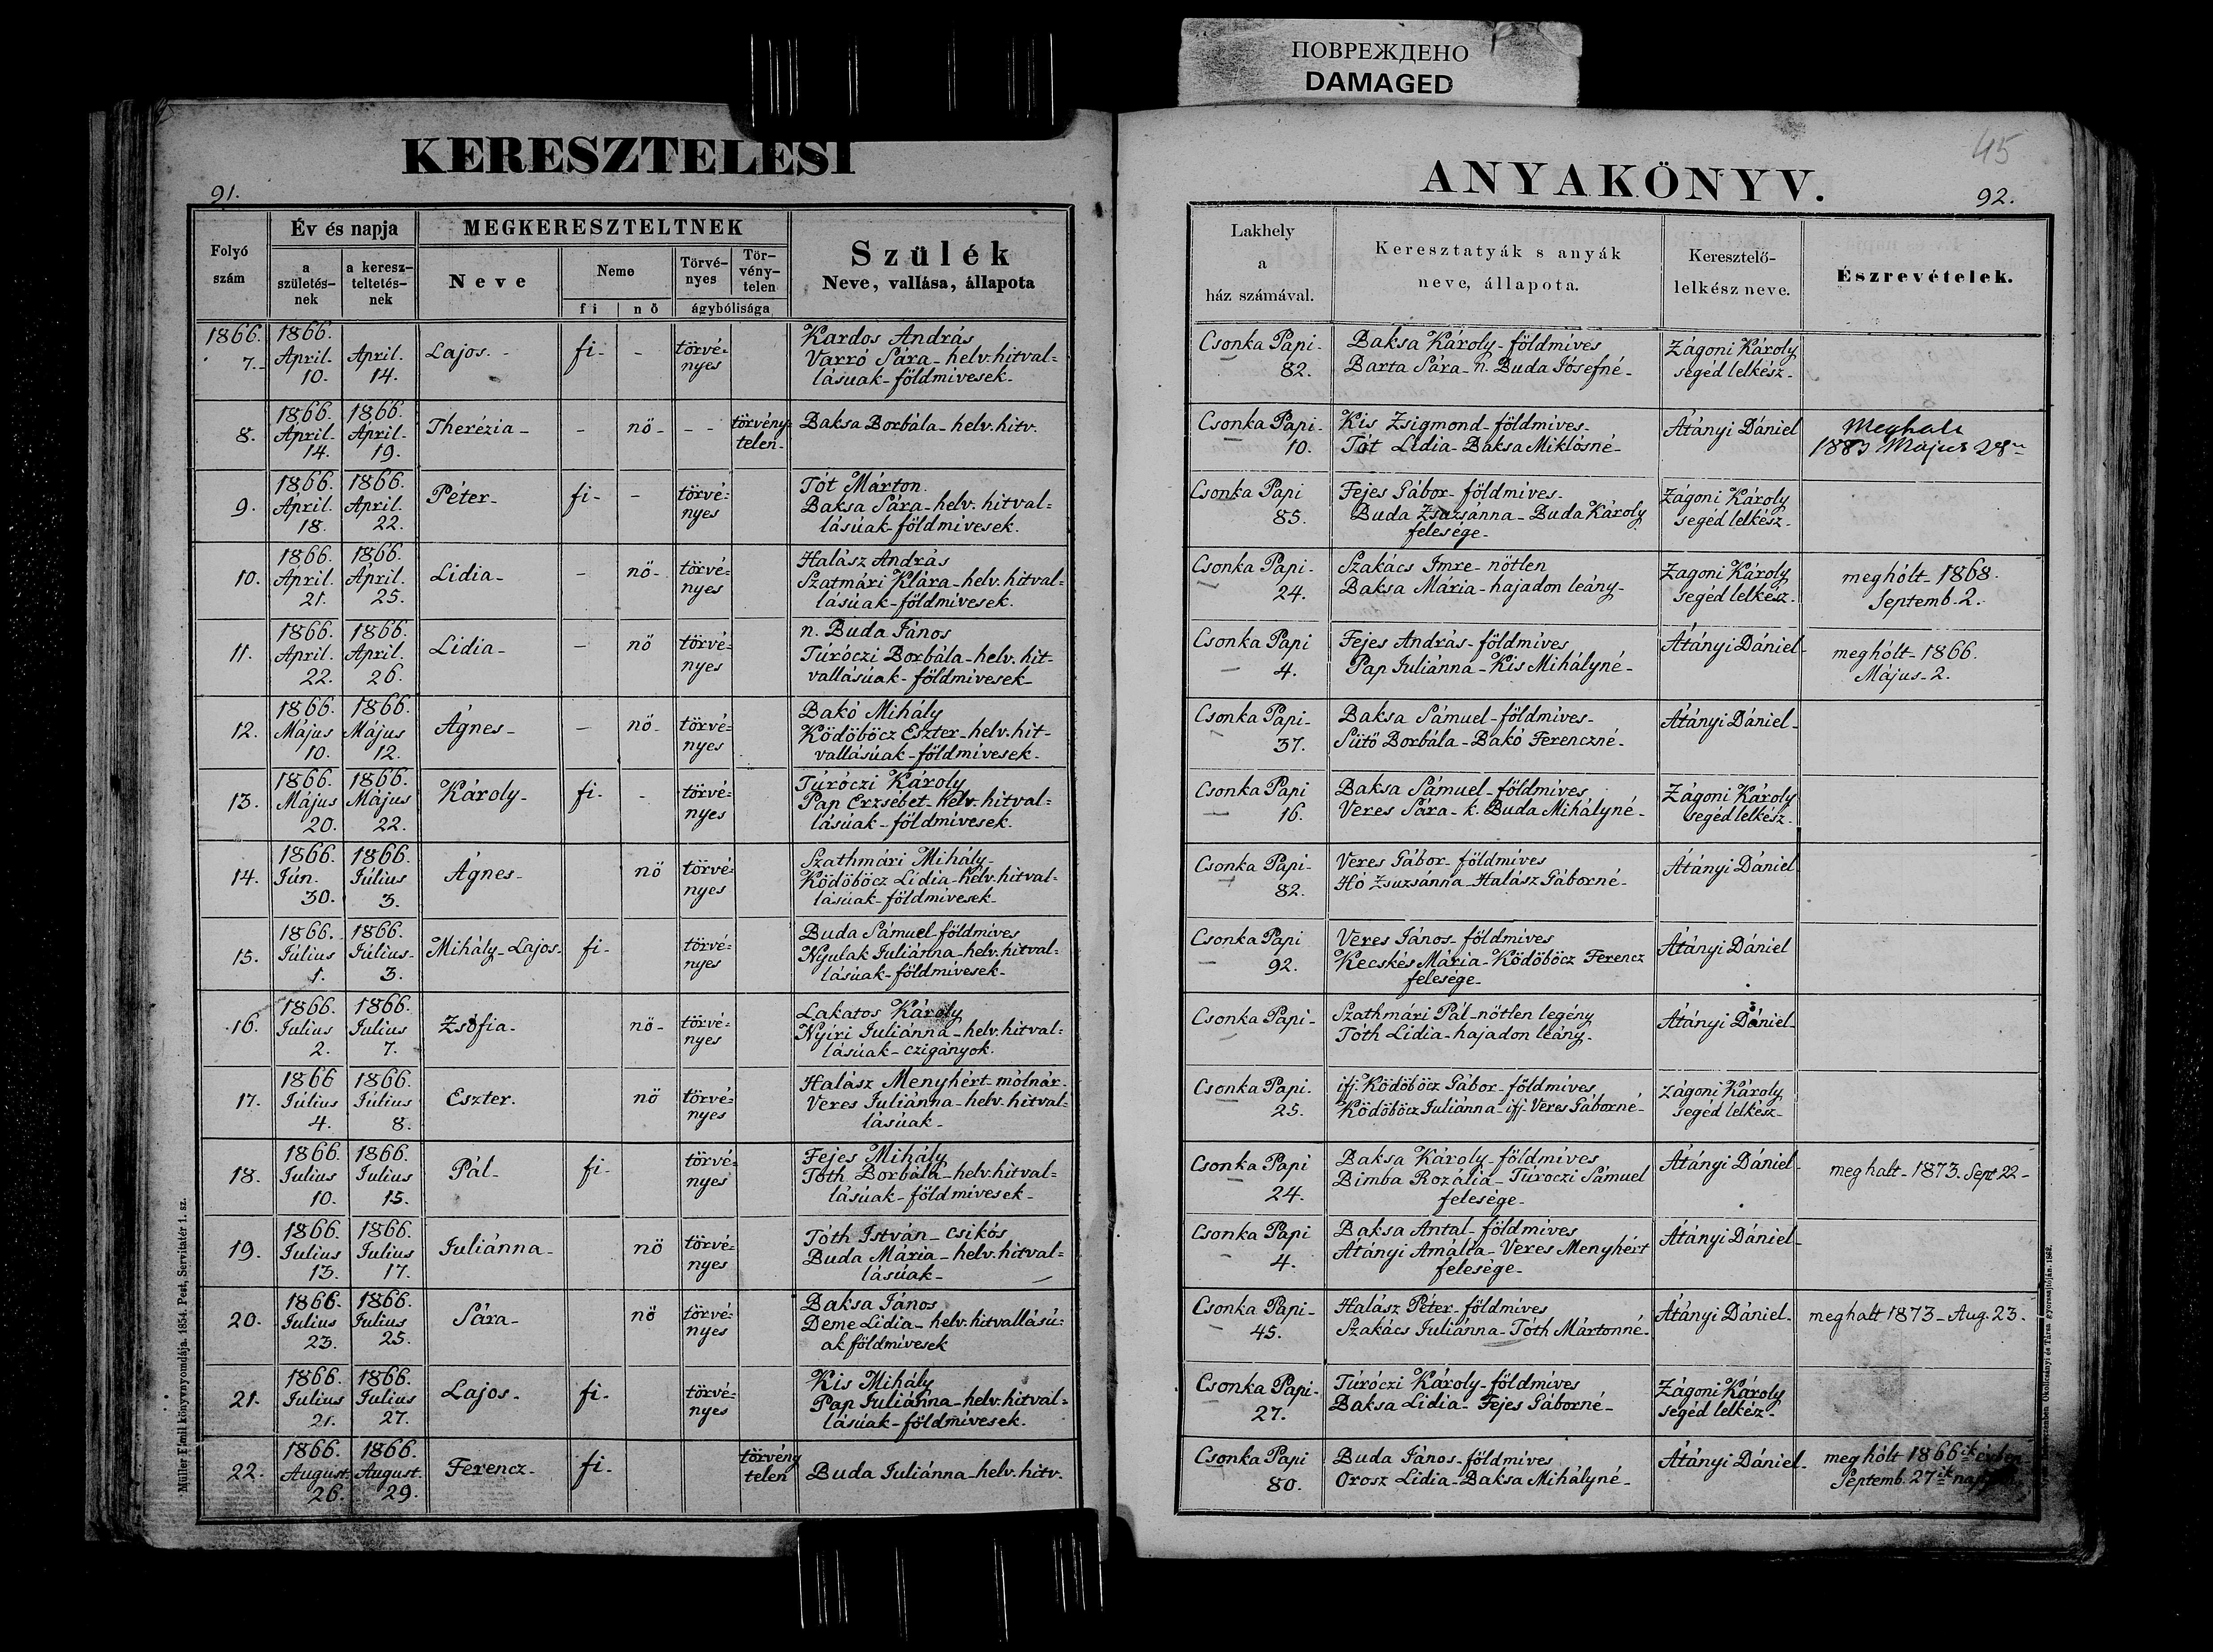 ПОВРЕЖДЕНО
DAMAGED
KERESZTELÉSI
91.
Folyó szám
Év és napja
a születés-nek
a keresz-teltetés-nek
MEGKERESZTELTNEK
Neve
Neme
fi
nő
Törvé-nyes
Tör-vény-telen
ágybólisága
Szülék
Neve, vallása, állapota
1866. 7. 1866. April. 10. April. 14. Lajos. - fi- - törvé=nyes
Kardos András
Varró Sára - helv. hitval=
lásuak - földmívesek -
8. 1866. April. 14. 1866. April. 19. Therézia - - nö - - - törvény=telen -
Baksa Borbála - helv. hitv.
9. 1866. Április 18. 1866. April. 22. Péter - fi- - törvé=nyes
Tót Márton
Baksa Sára - helv. hitval=
lásúak - földmívesek.
10. 1866. April. 21. 1866. April. 25. Lidia - - nö - törvé=nyes
Halász András
Szatmári Klára - helv. hitval=
lásúak - földmívesek.
11. 1866. April. 22. 1866. April. 26. Lidia - - nö törvé=nyes
n. Buda János
Túróczi Borbála - helv. hit=
vallásúak - földmívesek -
12. 1866. Május 10. 1866. Május 12. Ágnes - - nö - törvé=nyes
Bakó Mihály
Ködöböcz Eszter - helv. hit-
vallásúak - földmívesek -
13. 1866. Május 20. 1866. Május 22. Károly - fi- - törvé=nyes
Túróczi Károly
Pap Erzsébet - helv. hitval=
lásúak - földmívesek.
14. 1866. Jún. 30. 1866. Július 3. Ágnes - nö törvé=nyes
Szathmári Mihály -
Ködöböcz Lídia - helv. hitval=
lásúak - földmívesek -
15. 1866. Július 1. 1866. Július - 3. Mihály - Lajos - fi- törvé=nyes
Buda Sámuel - földmíves
Nyulak Juliánna - helv. hitval=
lásúak - földmívesek -
16. 1866. Julius 2. 1866. Julius 7. Zsófia - nö - törvé=nyes
Lakatos Károly
Nyíri Juliánna - helv. hitval=
lásúak - czigányok.
17. 1866 Július 4. 1866. Július 8. Eszter. nö törvé=nyes
Halász Menyhért - mólnár -
Veres Juliánna - helv. hitval=
lásúak -
18. 1866. Julius 10. 1866. Julius 15. Pál - fi- törvé=nyes
Fejes Mihály
Tóth Borbála - helv. hitval=
lásúak - földmívesek -
19. 1866. Julius 13. 1866. Julius 17. Juliánna - nö törvé=nyes
Tóth István - csikós
Buda Mária - helv. hitval=
lásúak -
20. 1866. Julius 23. 1866. Julius 25. Sára - nö törvé=nyes
Baksa János
Deme Lidia - helv. hitvallású=
ak földmívesek
21. 1866. Julius 21. 1866. Julius 27. Lajos - fi- törvé=nyes
Kis Mihály
Pap Juliánna - helv. hitval=
lásúak - földmívesek.
22. 1866. August. 26. 1866. August. 29. Ferencz - fi- törvény telen
Buda Juliánna - helv. hitv.
Müller Emil könyvnyomdája. 1854. Pest, Servitatér 1. sz.
ANYAKÖNYV.
45
92.
Lakhely a ház számával.
Keresztatyák s anyák neve, állapota.
Keresztelő-lelkész neve.
Észrevételek.
Csonka Papi - 82.
Baksa Károly - földmíves
Barta Sára - n. Buda Jósefné -
Zágoni Károly segéd lelkész -
Csonka Papi - 10.
Kis Zsigmond - földmíves -
Tót Lidia - Baksa Miklósné -
Átányi Dániel
Meghalt
1883 Május 28
Csonka Papi 85.
Fejes Gábor - földmíves -
Buda Zsuzsánna - Buda Károly
felesége -
Zágoni Károly segéd lelkész -
Csonka Papi - 24.
Szakács Imre - nötlen
Baksa Mária - hajadon leány -
Zagoni Károly segéd lelkész.
meghólt - 1868.
Septemb. 2.
Csonka Papi 4.
Fejes András - földmíves
Pap Juliánna - Kis Mihályné -
Átányi Dániel -
meghólt - 1866.
Május - 2.
Csonka Papi - 37.
Baksa Sámuel - földmíves -
Sütő Borbála - Bakó Ferenczné -
Átányi Dániel -
Csonka Papi 16.
Baksa Sámuel - földmíves
Veres Sára - k. Buda Mihályné -
Zágoni Károly segéd lelkész.
Csonka Papi - 82.
Veres Gábor - földmíves
Hó Zsuzsánna - Halász Gáborné -
Átányi Dániel
Csonka Papi 92.
Veres János - földmíves
Kecskés Mária - Ködöböcz Ferencz
felesége -
Átányi Dániel
Csonka Papi -
Szathmári Pál - nötlen legény
Tóth Lidia - hajadon leány -
Átányi Dániel -
Csonka Papi. 25.
ifj. Ködöböcz Gábor - földmíves
Ködöböcz Juliánna - ifj. Veres Gáborné -
Zágoni Károly segéd lelkész -
Csonka Papi 24.
Baksa Károly - földmíves
Bimba Rozália - Túroczi Sámuel
felesége -
Átányi Dániel -
meghalt - 1873. Sept 22 -
Csonka Papi 4.
Baksa Antal - földmíves
Átányi Amália - Veres Menyhért
felesége -
Átányi Dániel -
Csonka Papi - 45.
Halász Péter - földmíves
Szakács Juliánna - Tóth Mártonné -
Átányi Dániel -
meghalt 1873 - Aug. 23.
Csonka Papi - 27.
Túróczi Károly - földmíves
Baksa Lidia - Fejes Gáborné -
Zágoni Károly segéd lelkész -
Csonka Papi 80.
Buda János - földmíves
Orosz Lidia - Baksa Mihályné -
Átányi Dániel -
meghólt 1866ik évben
Septemb. 27ik